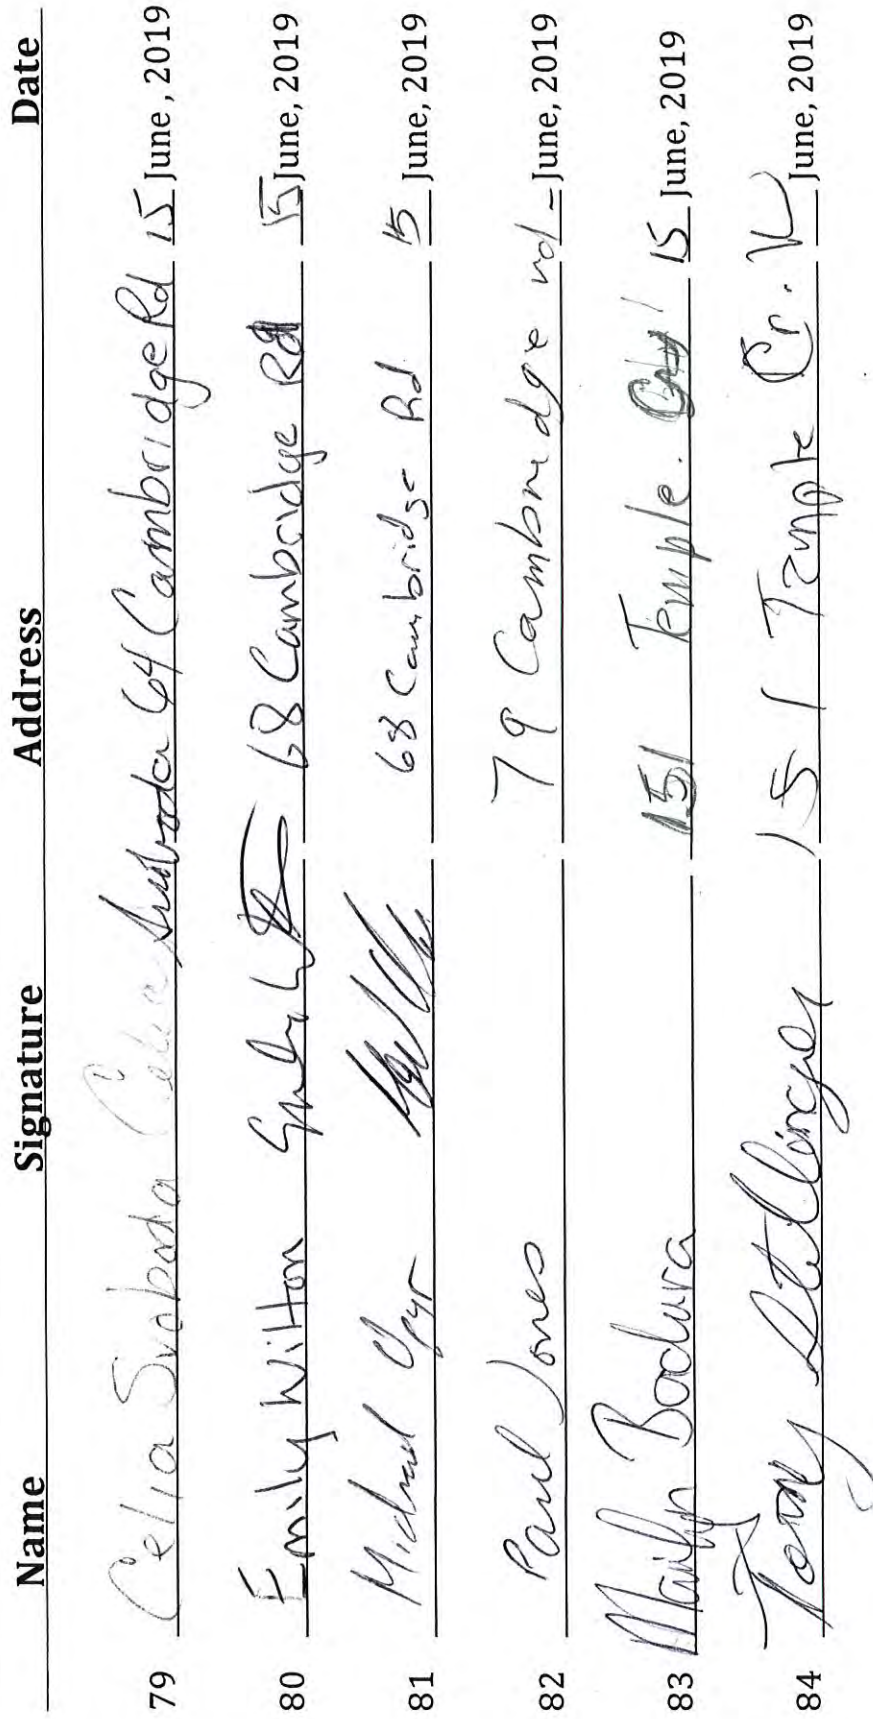 Name Signature Address Date
79 Celia Svoboda Celia Svoboda 64 Cambridge Rd 15 June, 2019
80 Emily Wilton 68 Cambridge Rd 15 June, 2019
81 Michael Cyr 68 Cambridge Rd 15 June, 2019
82 Paul Jones 79 Cambridge rd - June, 2019
83 Bodura 151 Temple. 15 June, 2019
84 151 Temple Cr. June, 2019